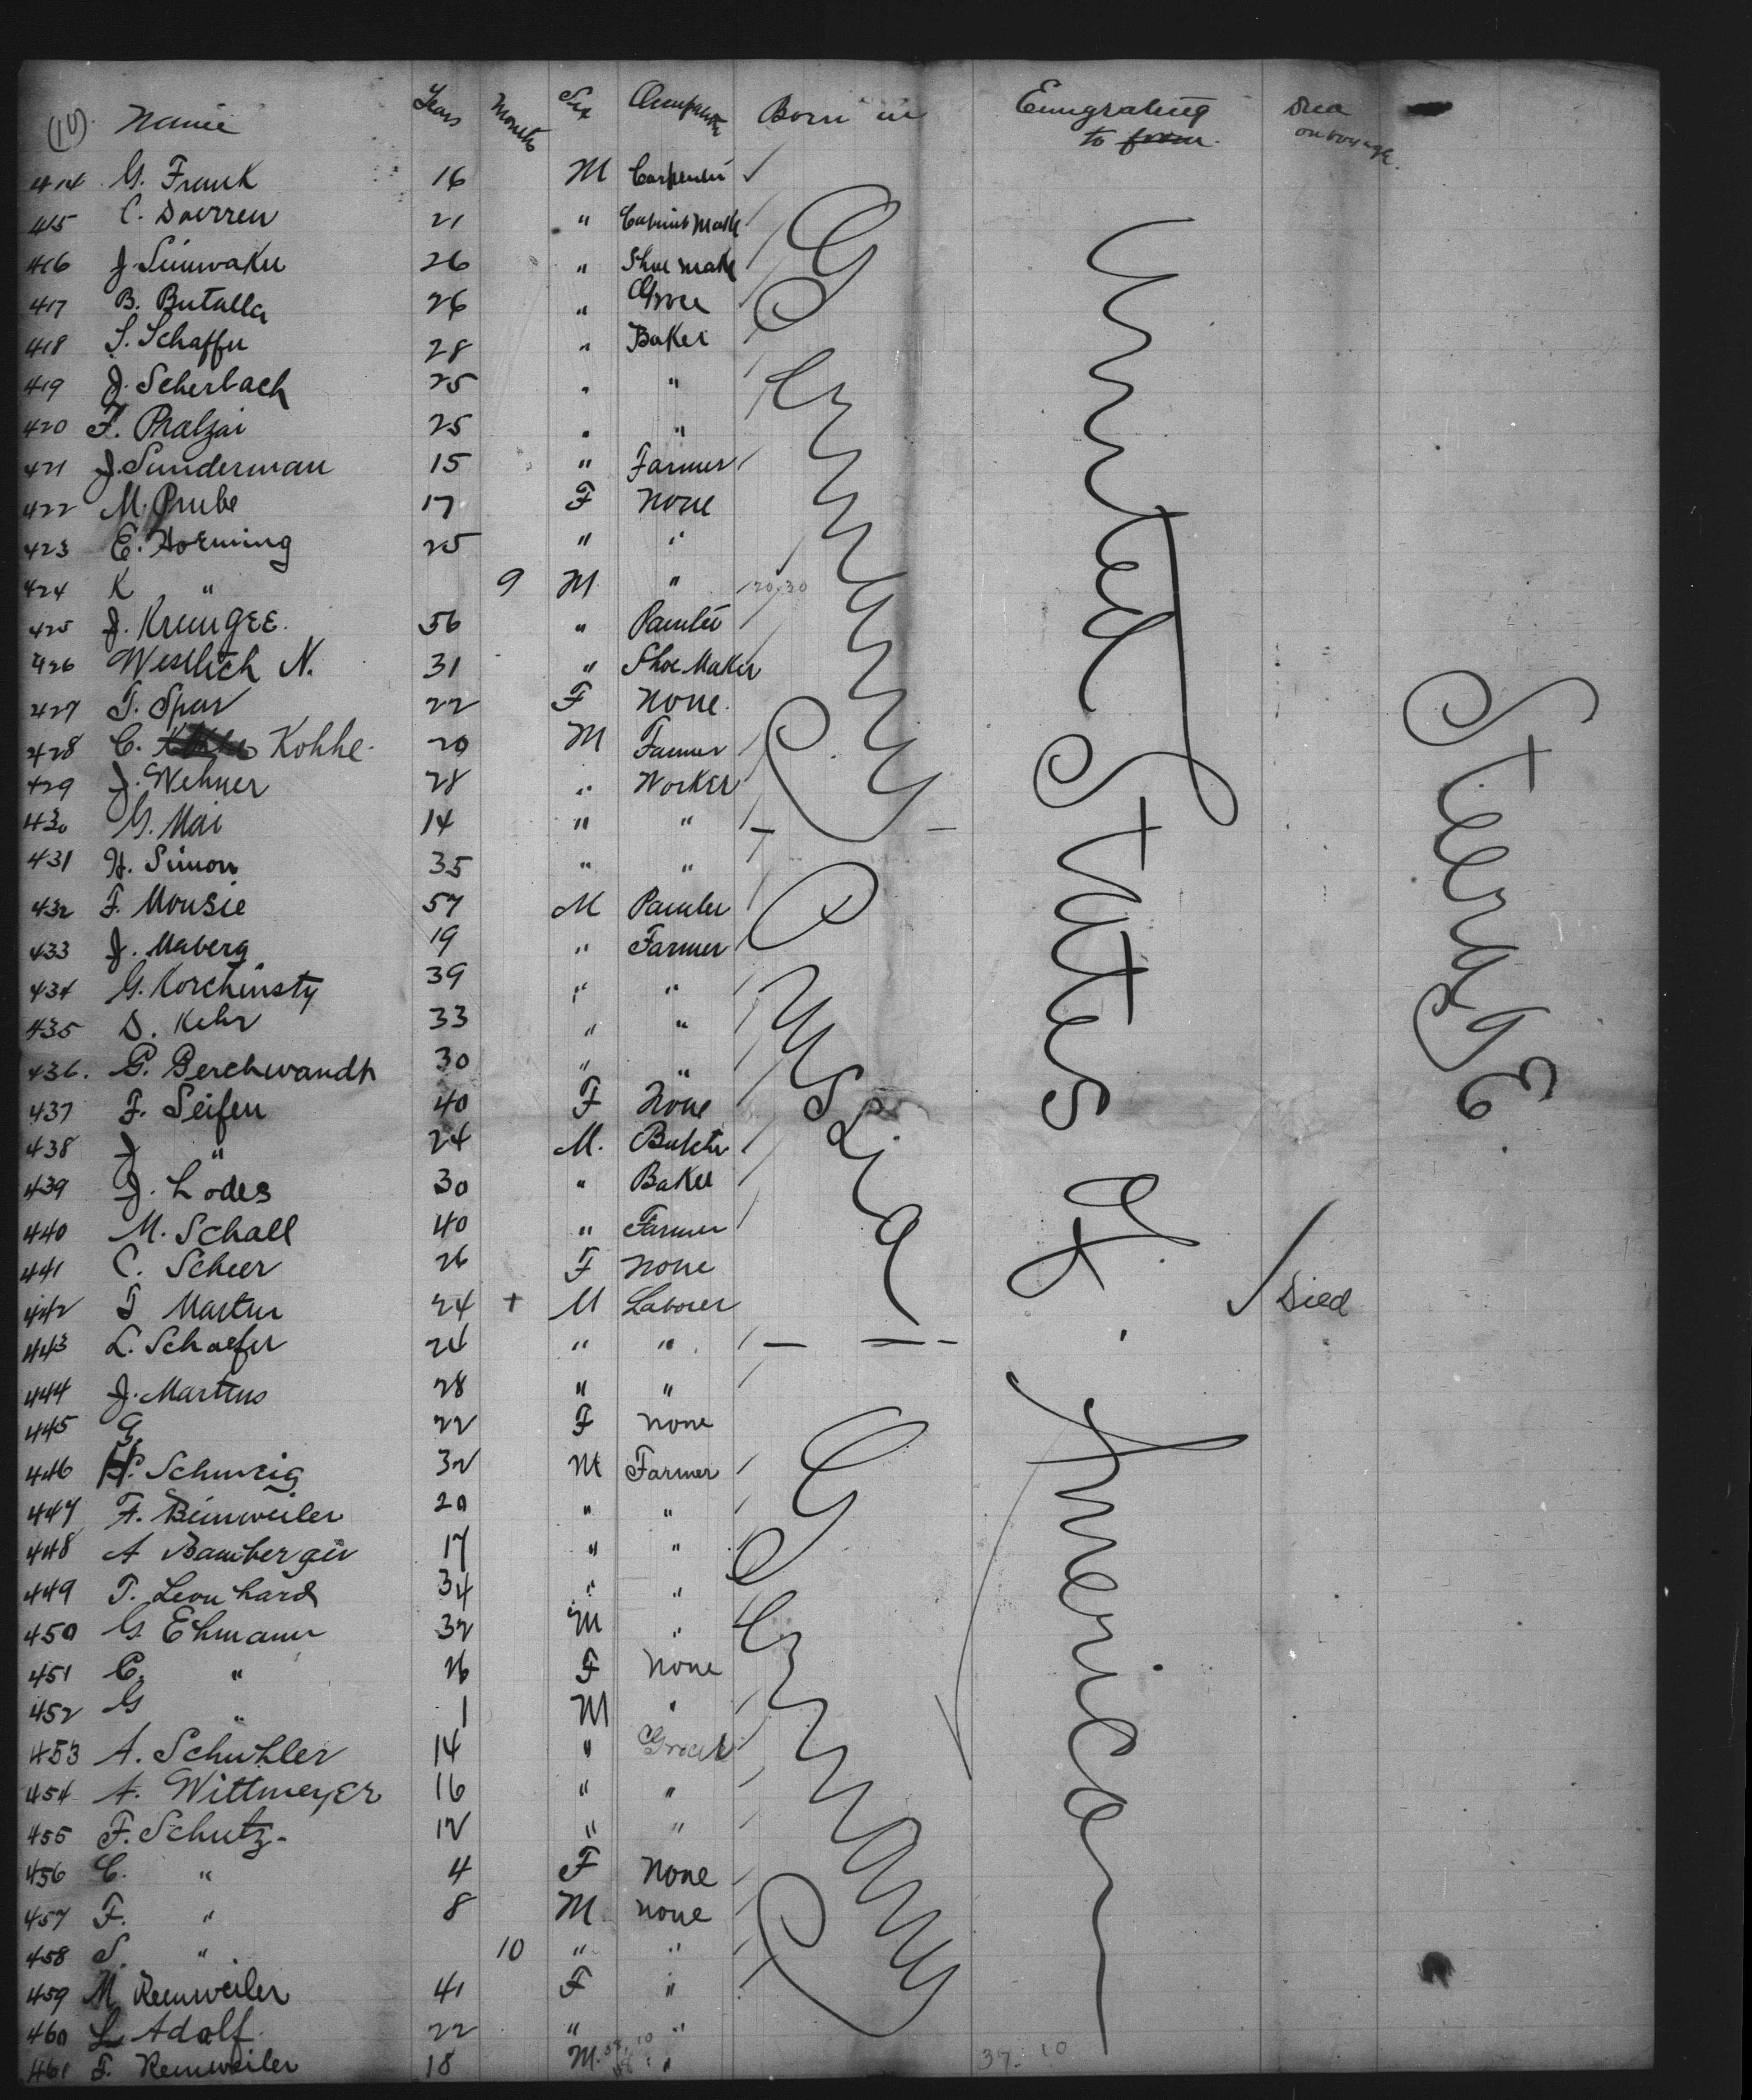 (10) Name Years Months Sex Occupation Born in Emigrating to from Died on voyage
414 G. Frank 16 M Carpenter
415 C. Doerren 21 " Cabinet Make
416 J. Simwaku 26 " Shoe make
417 B. Butalla 26 "
418 S. Schaffer 28 " Baker
419 J. Scherbach 25 " "
420 F. Phalzai 25 " "
421 J. Sunderman 15 " Farmer
422 M. Prube 17 F none
423 E. Horning 25 " "
424 K " 9 M "
425 J. Krumgee. 56 " Painter
426 Westlich N. 31 " Shoe Maker
427 T. Spar 22 F none.
428 C. Kohhe 20 M Farmer
429 J. Wehner 28 " Worker
430 G. Mai 14 " "
431 H. Simon 35 " "
Germany
432 F. Mousie 57 M Painter
433 J. Maberg 19 " Farmer
434 G. Korchinsty 39 " "
435 D. Kehr 33 " "
436. P. Berchwandt 30 " "
437 F. Seifen 40 F None
438 J " 24 M. Butcher
439 J. Lodes 30 " Baker
440 M. Schall 40 " Farmer
441 C. Scheer 26 F none
442 T Martin 24 + M Laborer Died
443 L. Schaefer 24 " "
Russia
444 J. Martins 28 " "
445 G. 22 F none
446 H. Schweig 32 M Farmer
447 F. Beinweiler 20 " "
448 A Bamberger 17 " "
449 T. Leonhard 34 " "
450 G. Ehmann 32 M "
451 C. " 26 F None
452 G " 1 M "
453 A. Schuhler 14 " Grocer
454 A. Wittmeyer 16 " "
455 F. Schutz. 12 " "
456 C. " 4 F none
457 F. " 8 M none
458 S. " 10 " "
459 M Remweiler 41 F "
460 L Adolf 22 " "
461 F. Remweiler 18 M. "
Germany
United States of America
Steerage
37. 10